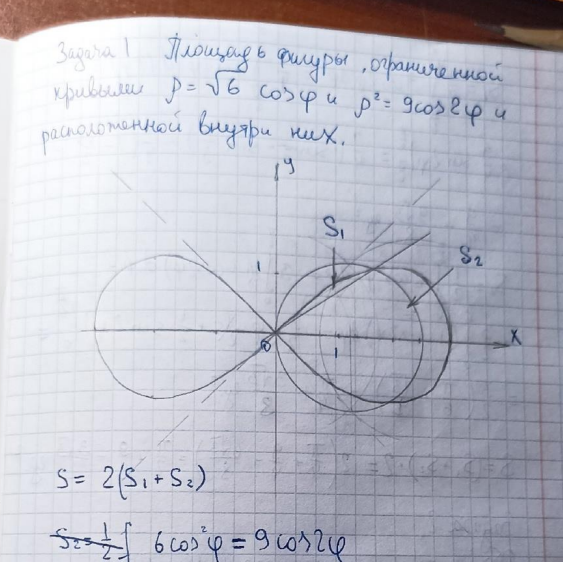 Задача 1 Площадь фигуры, ограниченной
кривыми ρ = √6 cos φ и ρ² = 9cos2φ и
расположенной внутри них.
y
S₁
S₂
1
x
0
1
S = 2(S₁ + S₂)
S₂ = 1/2 ∫ 6cos²φ = 9cos2φ